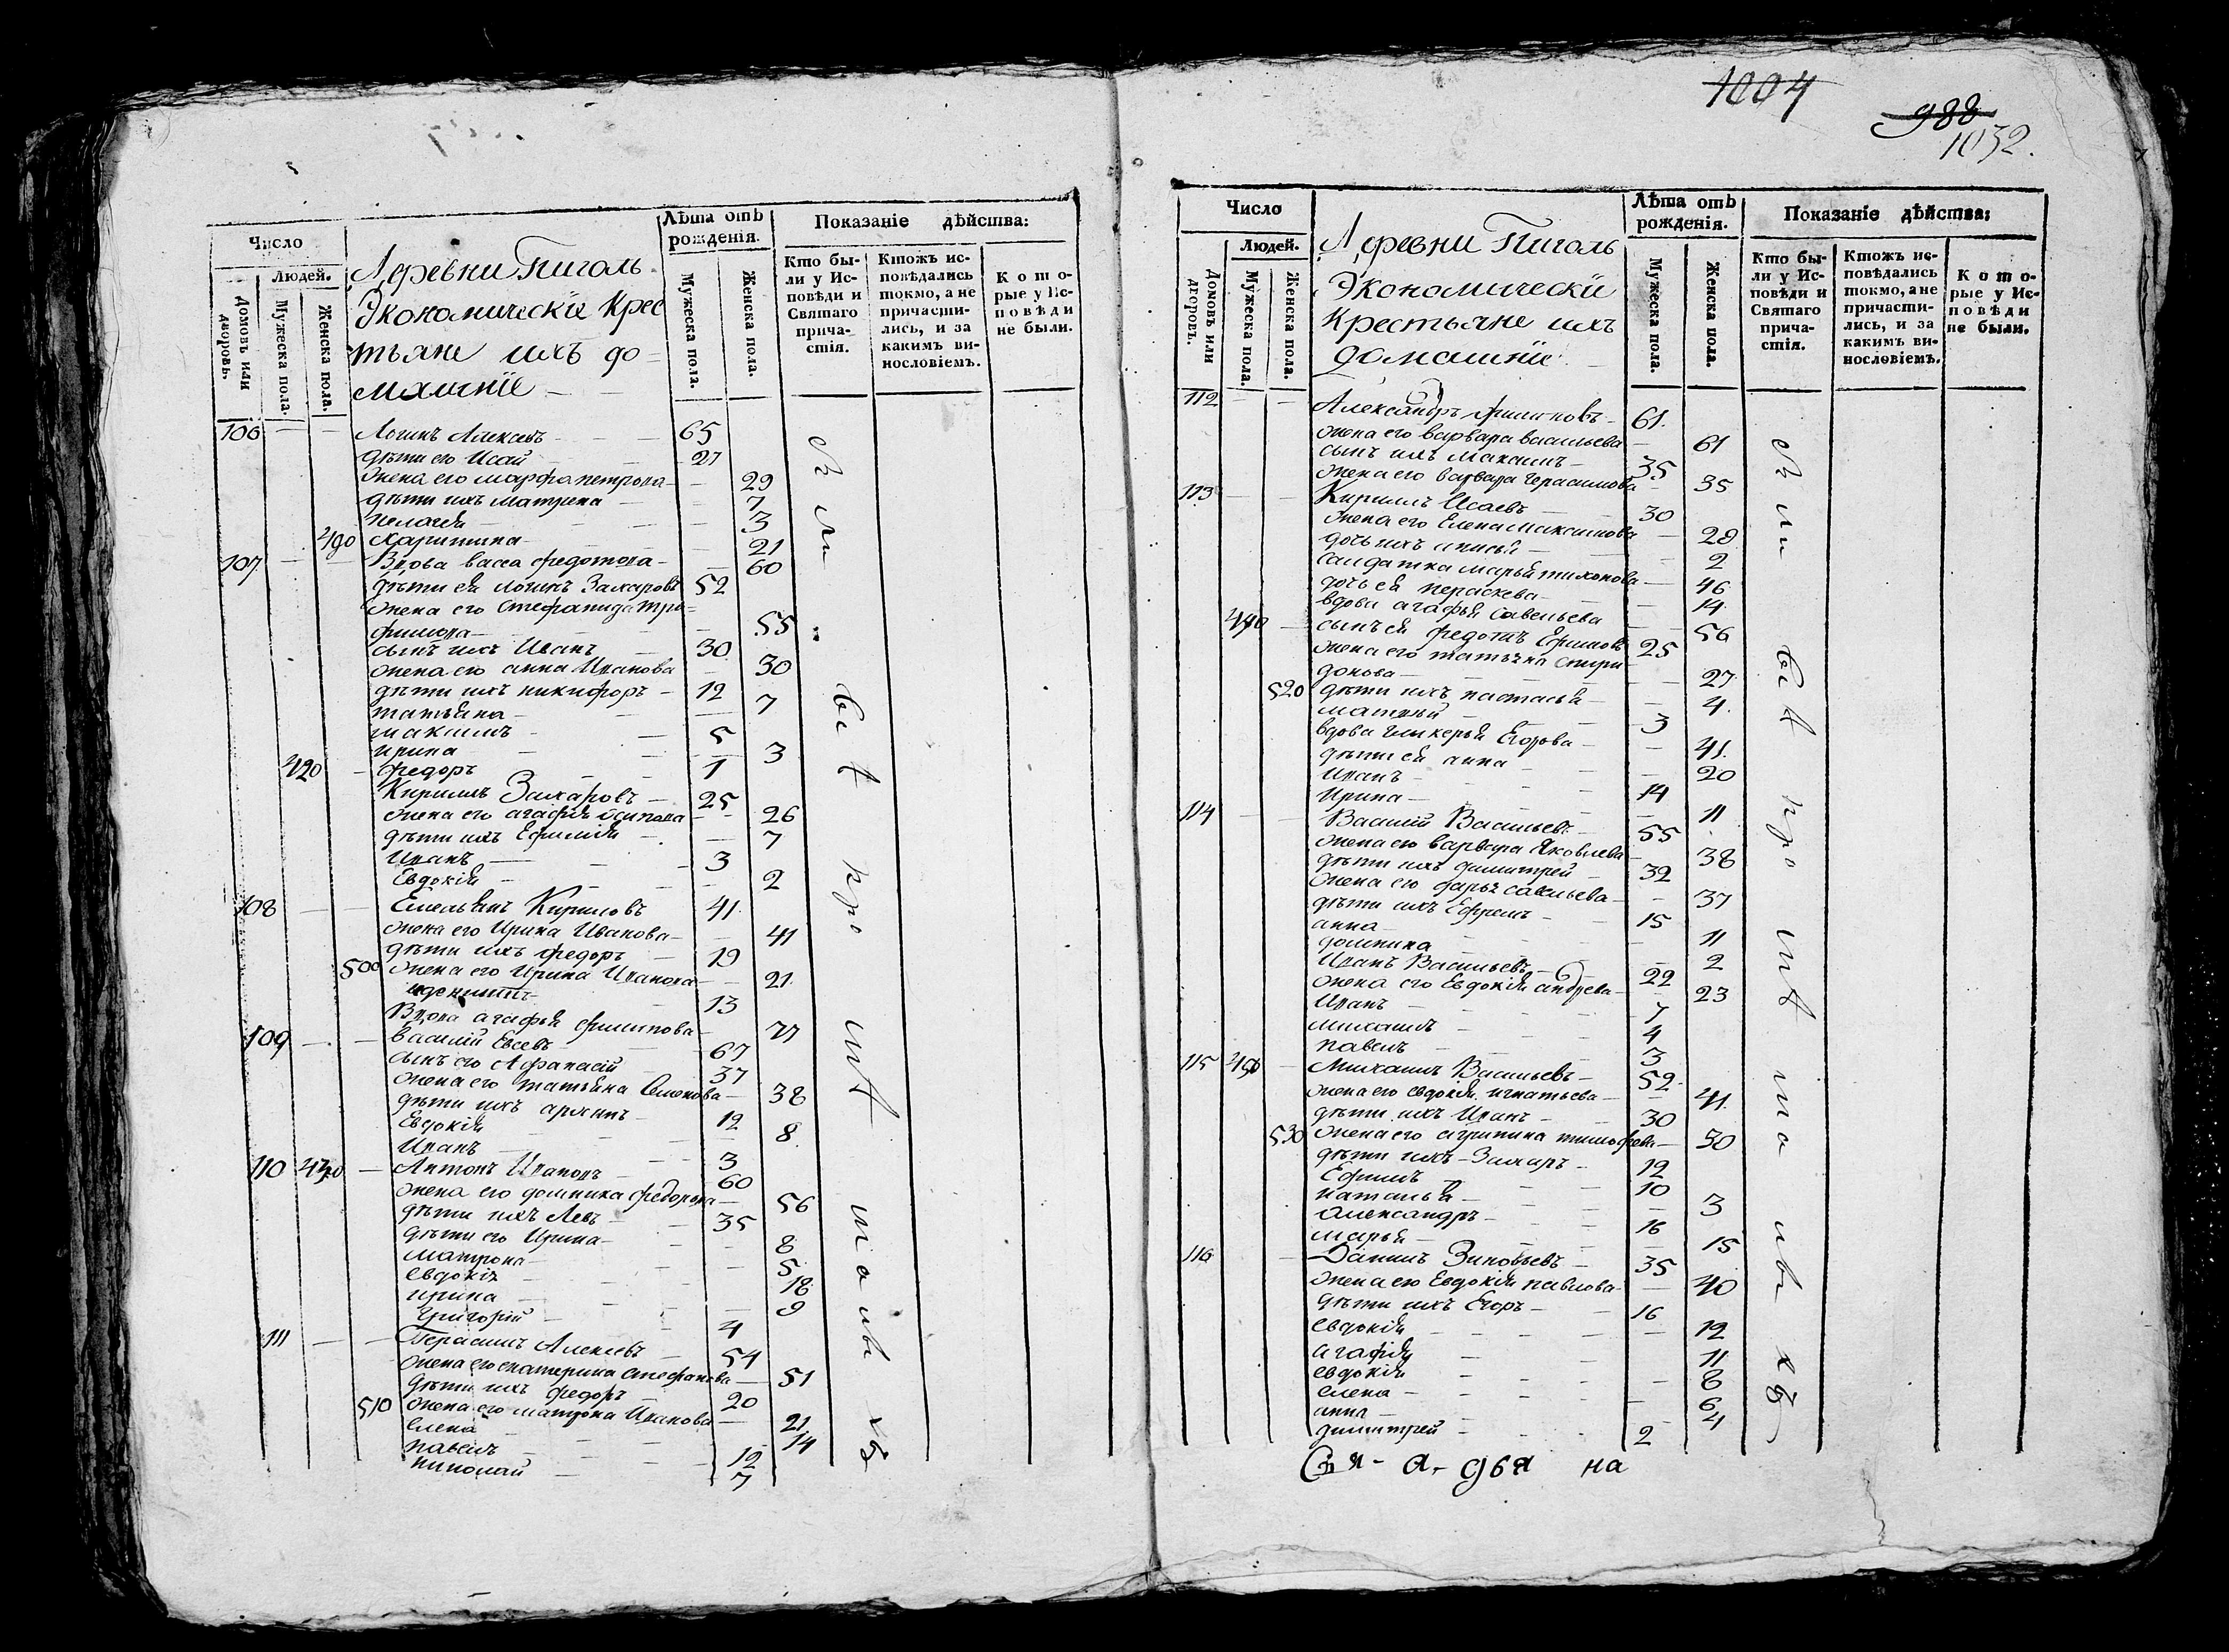 1004
988
1032.
Число
Лѣта отъ рожденія.
Показаніе дѣйства:
Людей.
Домовъ или дворовъ.
Мужеска пола.
Женска пола.
Деревни Пиголь
Экономическіе Крес
тьяне ихъ до=
машніе
Мужеска пола.
Женска пола.
Кто бы-
ли у Ис-
повѣди и
Святаго
прича-
стія.
Ктожъ ис-
повѣдались
токмо, а не
причасти-
лись, и за
какимъ ви-
нословіемъ.
К о т о-
рые у Ис-
п о в ѣ д и
не были.
106 Логинъ Алексеевъ 65
дѣти его Исай 27
жена его марфа петрова 29
дѣти ихъ матрена 7
пелагея 3
490 харитина 21
107 Вдова васса федотова 60
дѣти ея логинъ Захаровъ 52
жена его стефанида тро=
фимова 55
сынъ ихъ Иванъ 30
жена его анна Иванова 30
дѣти ихъ никифоръ 12
татьяна 7
максимъ 5
ирина 3
420 федоръ 1
Кирилъ Захаровъ 25
жена его агафія осипова 26
дѣти ихъ Ефимія 7
Иванъ 3
Евдокія 2
108 Емельянъ Кириловъ 41
жена его Ирина Иванова 41
дѣти ихъ федоръ 19
500 жена его Ирина Иванова 21
13
Вдова агафья филипова 77
109 василій Евсевъ 67
сынъ его Афанасій 37
жена его татьяна Семенова 38
дѣти ихъ архипъ 12
Евдокія 8
Иванъ 3
110 430 Антонъ Ивановъ 60
жена его домника федорова 56
дѣти ихъ Левъ 35
дѣти его Ирина 8
матрона 5
евдокія 18
ирина 9
Григорій 4
111 Герасимъ Алексевъ 54
жена его екатерина стефанова 51
дѣти ихъ федоръ 20
510 жена его матрона Иванова 21
елена 14
павелъ 12
николай 7
Число
Лѣта отъ рожденія.
Показаніе дѣйства:
Людей.
Домовъ или дворовъ.
Мужеска пола.
Женска пола.
Деревни Пиголь
Экономическіе
Крестьяне ихъ
домашніе
Мужеска пола.
Женска пола.
Кто бы-
ли у Ис-
повѣди и
Святаго
прича-
стія.
Ктожъ ис-
повѣдались
токмо, а не
причасти-
лись, и за
какимъ ви-
нословіемъ.
К о т о-
рые у Ис-
п о в ѣ д и
не были.
112 Александръ филиповъ 61
жена его варвара васильева 61
сынъ ихъ Максимъ 35
жена его варвара герасимова 35
113 Кирилъ Исаевъ 30
жена его Елена Максимова 28
дочь ихъ анисья 2
салдатка марья тихонова 46
дочь ея пераскева 14
вдова агафья савельева 56
440 сынъ ея федотъ Ефимовъ 25
жена его татьяна спири
донова 27
520 дѣти ихъ настасья 4
матвей 3
вдова гликерья Егорова 41
дѣти ея анна 20
Иванъ 14
Ирина 11
114 Василій Васильевъ 55
жена его варвара Яковлева 38
дѣти ихъ димитрей 32
жена его дарья савельева 37
дѣти ихъ Ефремъ 15
анна 11
домника 2
Иванъ Васильевъ 22
жена его Евдокія андрева 23
Иванъ 7
михаилъ 4
павелъ 3
115 450 Михаилъ Васильевъ 52
жена его евдокія игнатьева 41
дѣти ихъ Иванъ 30
530 жена его агрипина тимофеева 30
дѣти ихъ Захаръ 12
Ефимъ 10
наталья 3
Александръ 16
марья 15
116 Данилъ Зиновьевъ 35
жена его Евдокія павлова 40
дѣти ихъ Егоръ 16
евдокія 12
агафія 11
евдокія 8
елена 6
анна 4
димитрей 2